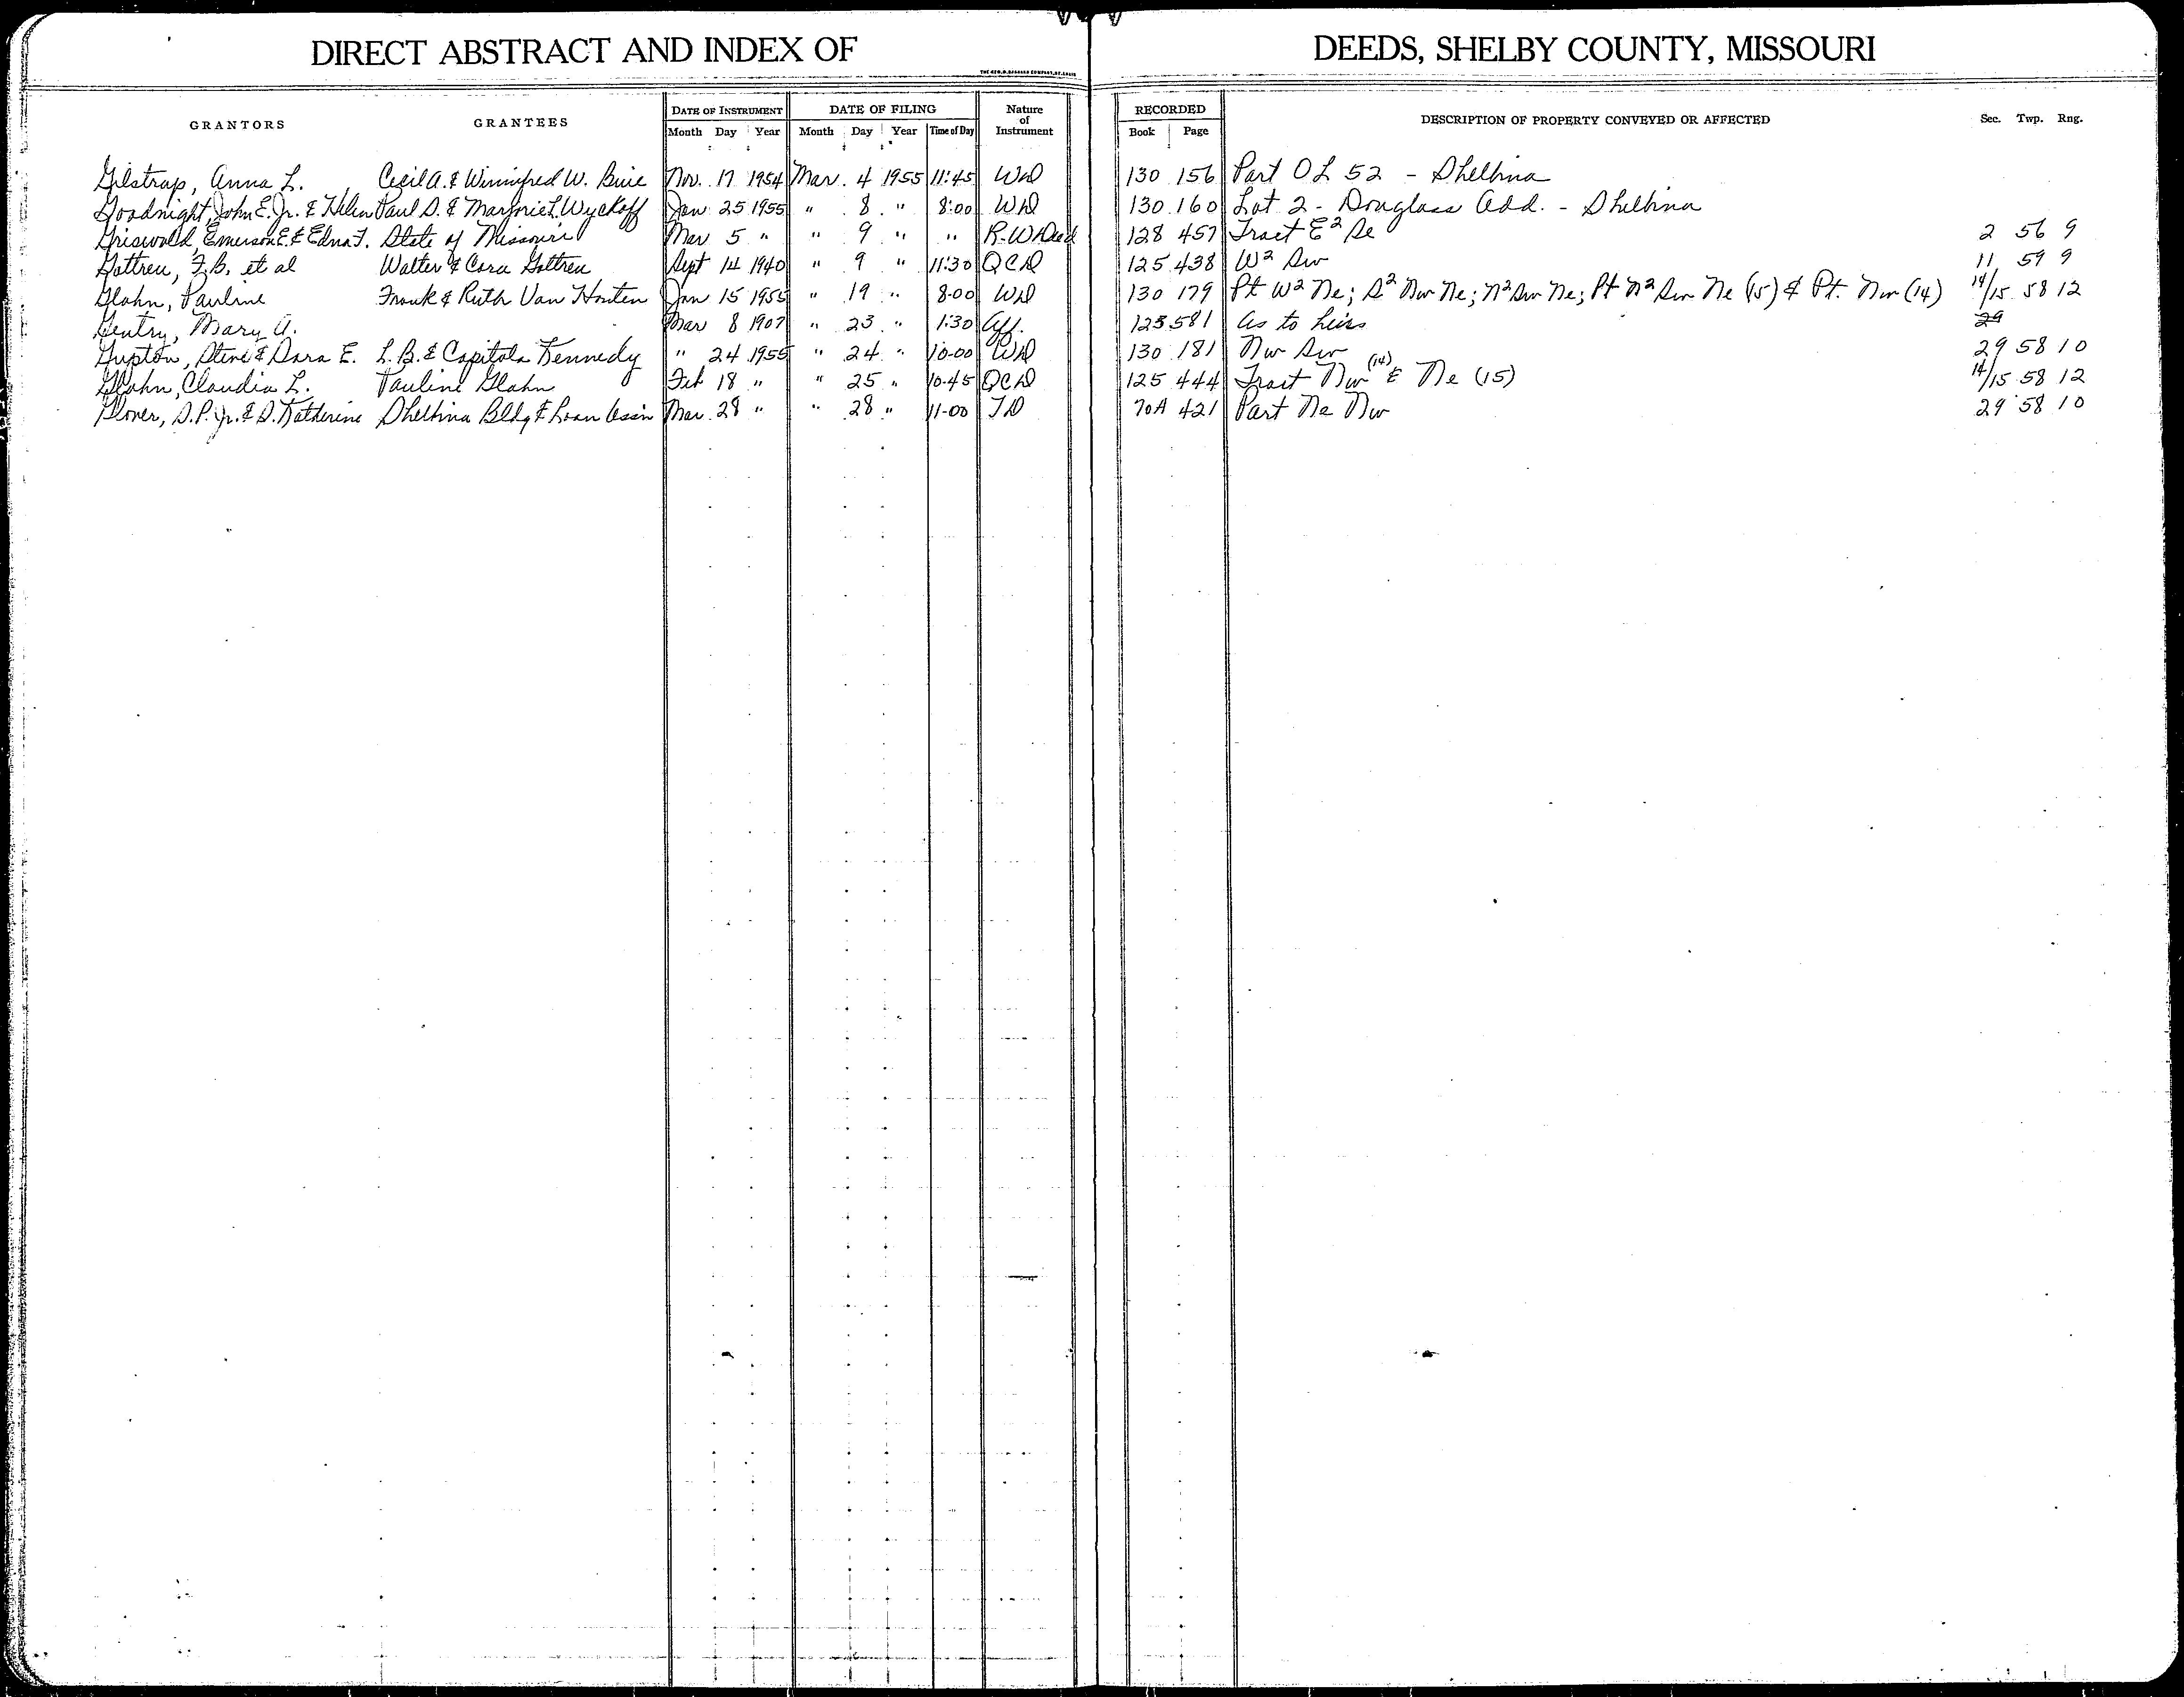 DIRECT ABSTRACT AND INDEX OF DEEDS, SHELBY COUNTY, MISSOURI
GRANTORS GRANTEES DATE OF INSTRUMENT DATE OF FILING Nature of Instrument RECORDED DESCRIPTION OF PROPERTY CONVEYED OR AFFECTED Sec. Twp. Rng.
Month Day Year Month Day Year Time of Day Book Page
Gilstrap, Anna L. Cecil A. & Winnifred W. Buie Nov. 17 1954 Mar. 4 1955 11:45 WD 130 156 Part OL 52 - Shelbina
Goodnight, John E. Jr. & Helen Paul S. & Marjorie L. Wyckoff Jan 25 1955 " 8 " 8:00 WD 130 160 Lot 2 - Douglass Add. - Shelbina
Griswold, Emerson E. & Edna F. State of Missouri Mar 5 " " 9 " " R.W. Deed 128 457 Tract E² Se 2 56 9
Gottren, F.B. et al Walter & Cora Gottren Sept 14 1940 " 9 " 11:30 QCD 125 438 W² Sw 11 59 9
Glahn, Pauline Frank & Ruth Van Houten Jan 15 1955 " 19 " 8:00 WD 130 179 Pt W² Ne; S² Nw Ne; N² Sw Ne; Pt N² Sw Ne (15) & Pt. Nw (14) 14/15 58 12
Gentry, Mary A. Mar 8 1907 " 23 " 1:30 Aff. 123 581 As to heirs 29
Gupton, Steve & Sara E. L.B. & Capitola Kennedy " 24 1955 " 24 " 10:00 WD 130 181 Nw Sw 29 58 10
Glahn, Claudia L. Pauline Glahn Feb 18 " " 25 " 10:45 QCD 125 444 Tract Nw (14) & Ne (15) 14/15 58 12
Glover, S.P. Jr. & S. Katherine Shelbina Bldg & Loan Assn Mar. 28 " " 28 " 11-00 TD 70A 421 Part Ne Nw 29 58 10